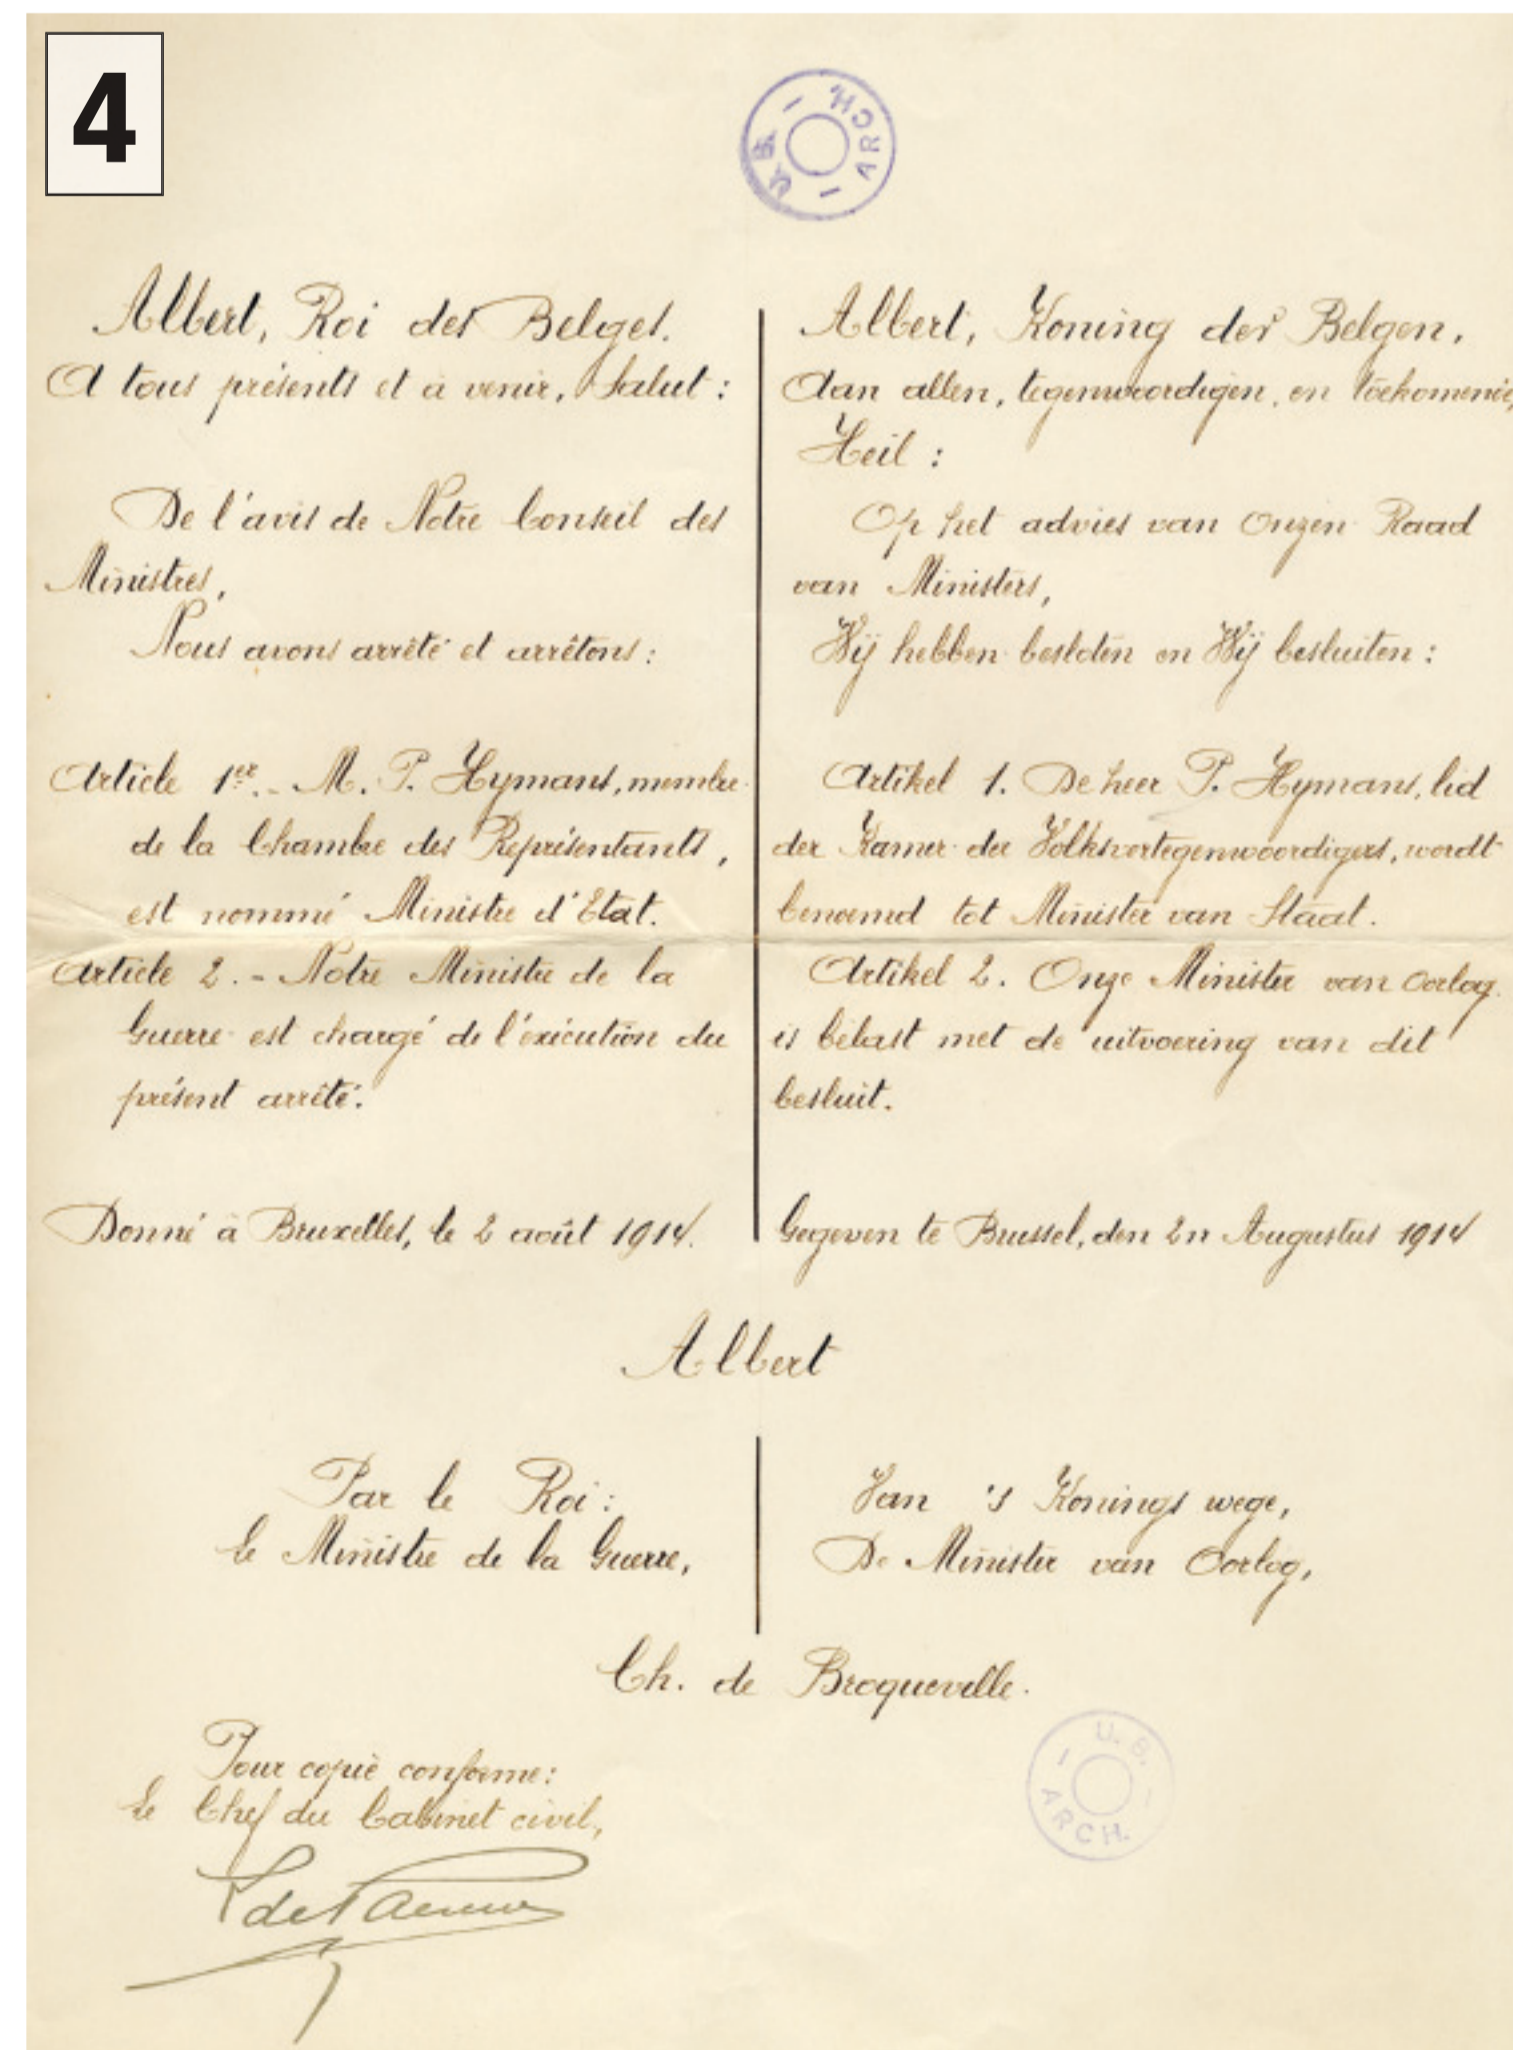 4
U.B. ARCH.
Albert, Roi des Belges.
A tous présents et à venir, Salut :
De l'avis de Notre Conseil des
Ministres,
Nous avons arrêté et arrêtons :
Article 1er. - M. P. Hymans, membre
de la Chambre des Représentants,
est nommé Ministre d'Etat.
Article 2. - Notre Ministre de la
Guerre est chargé de l'exécution du
présent arrêté.
Donné à Bruxelles, le 2 août 1914.
Albert, Koning der Belgen,
Aan allen, tegenwoordigen, en toekomende,
Heil :
Op het advies van Onzen Raad
van Ministers,
Wij hebben besloten en Wij besluiten :
Artikel 1. De heer P. Hymans, lid
der Kamer der Volksvertegenwoordigers, wordt
benoemd tot Minister van Staat.
Artikel 2. Onze Minister van Oorlog
is belast met de uitvoering van dit
besluit.
Gegeven te Brussel, den 2n Augustus 1914
Albert
Par le Roi :
Le Ministre de la Guerre,
Van 's Konings wege,
De Minister van Oorlog,
Ch. de Broqueville.
Pour copie conforme :
Le Chef du Cabinet civil,
U.B. ARCH.